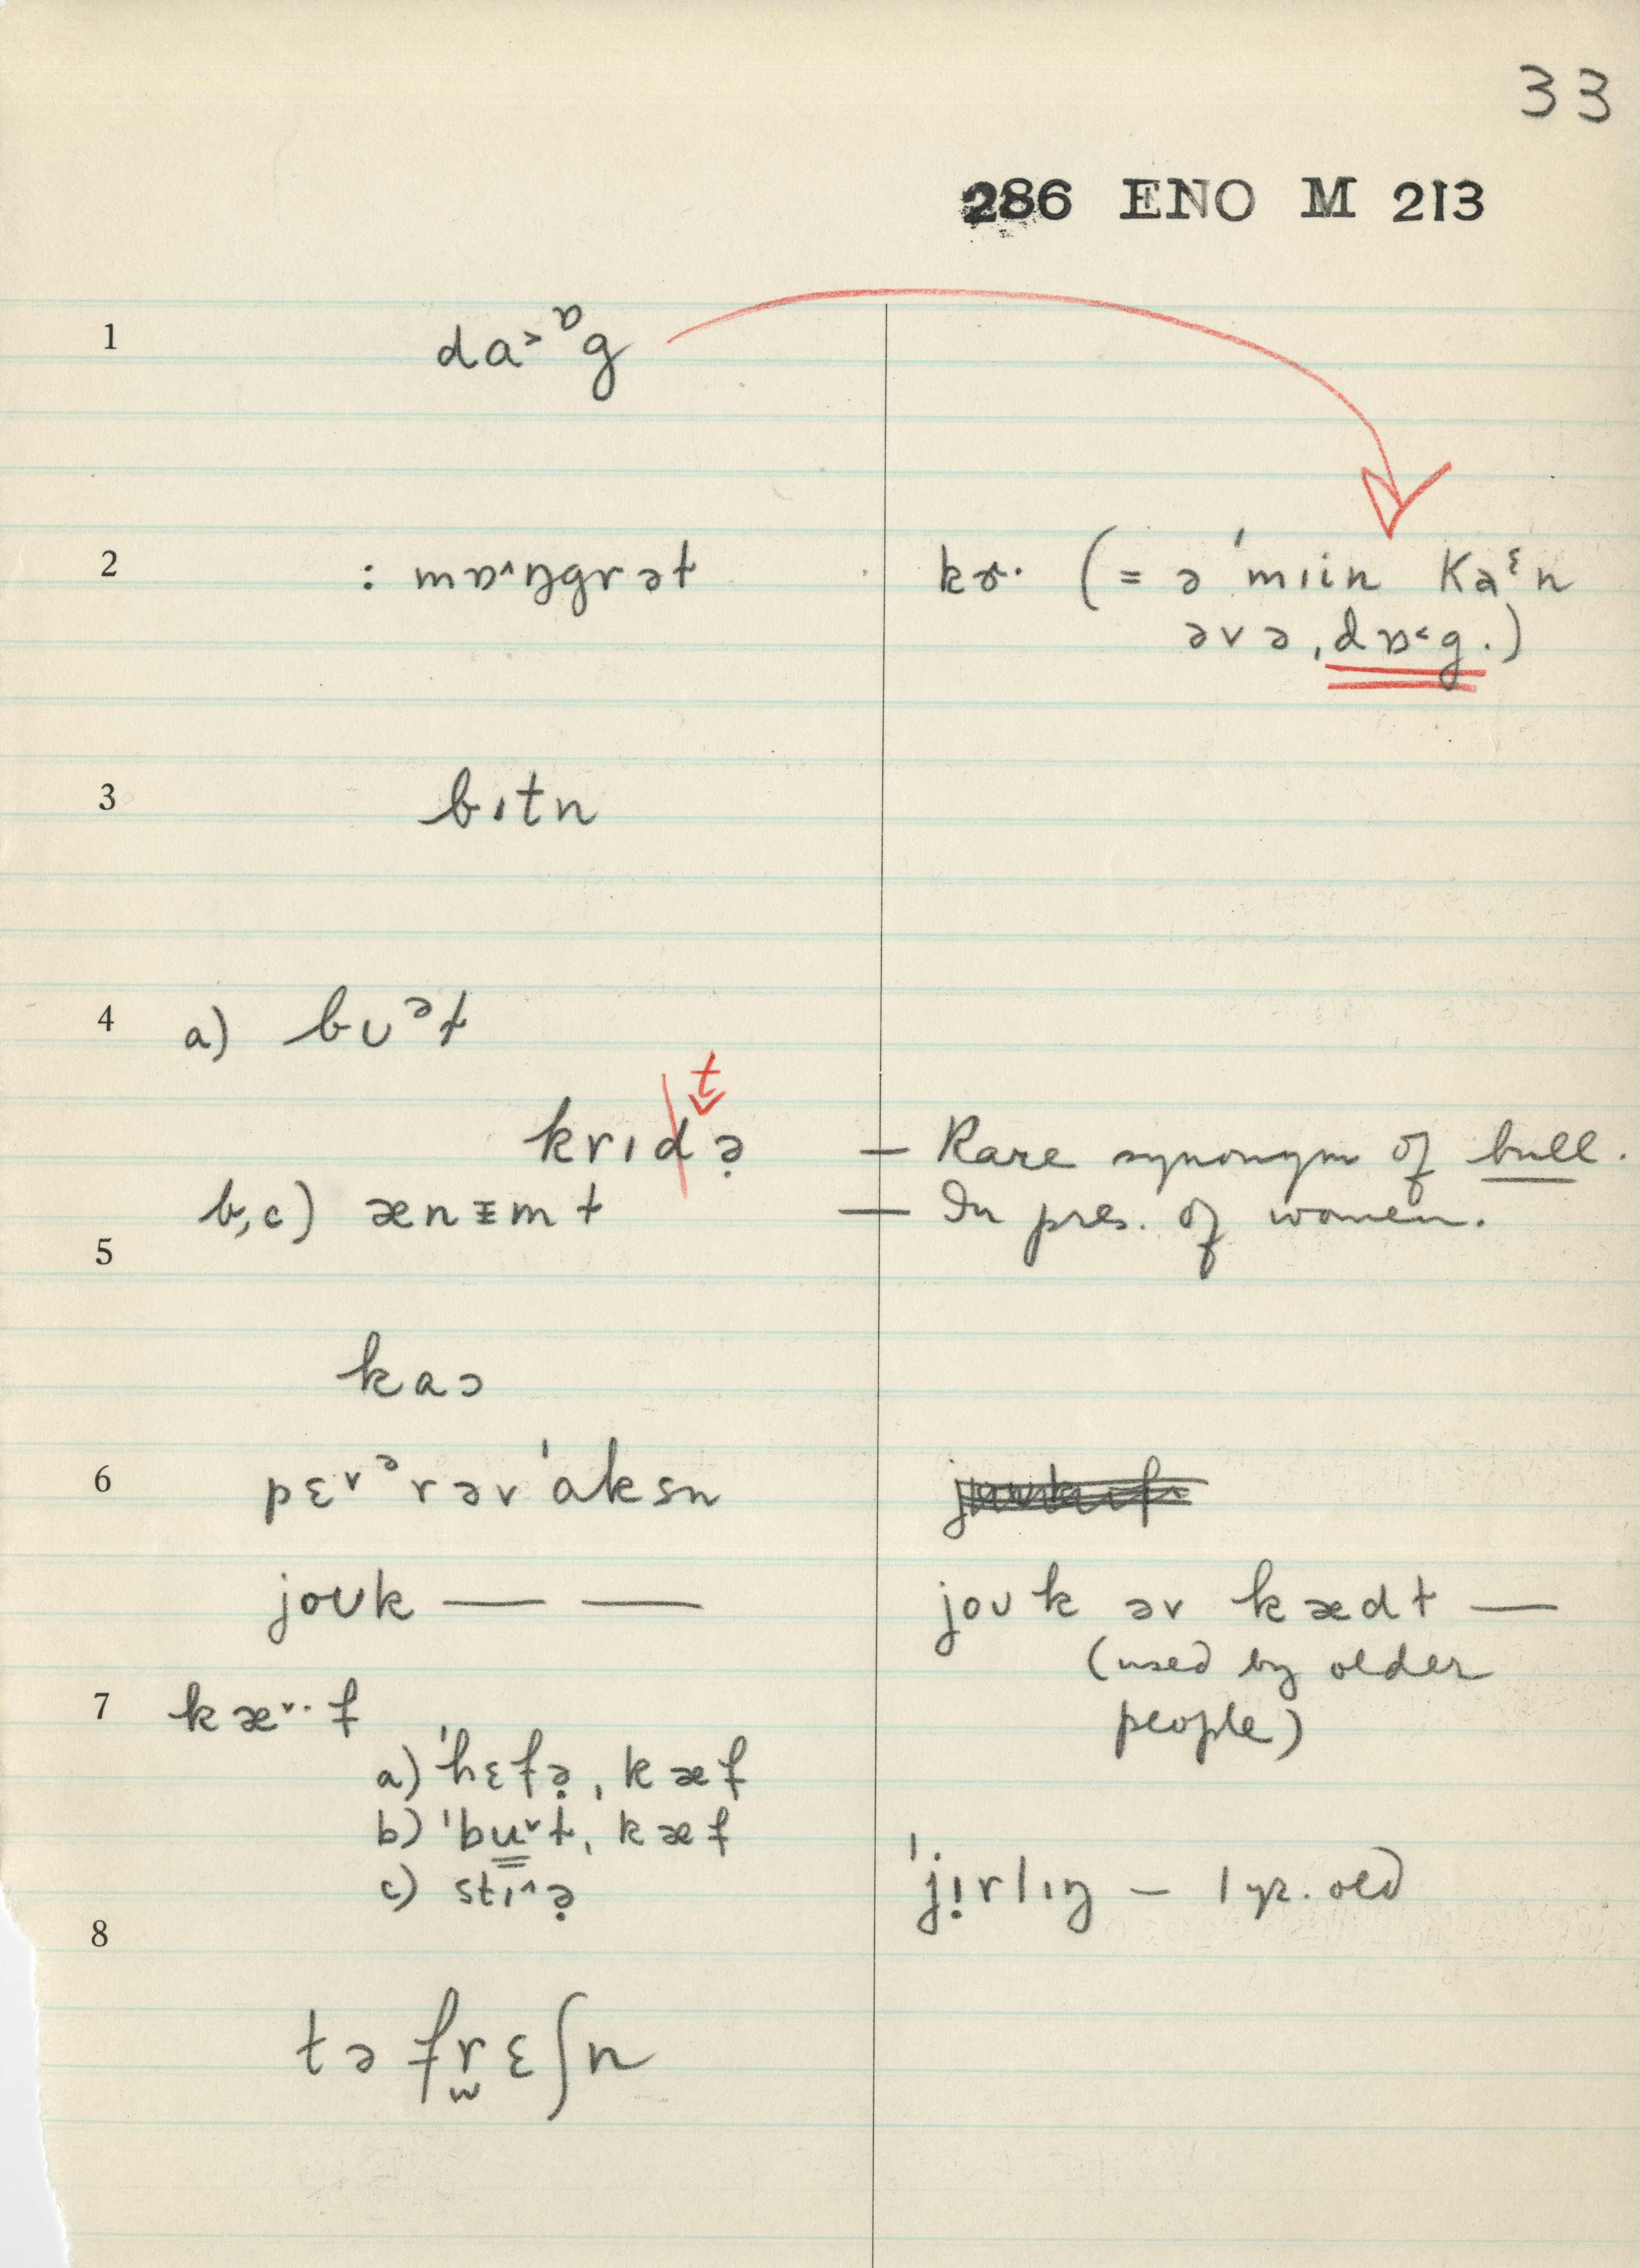 33
286 ENO M 213
1 da˃ᶛg
2 : mɒ˄ŋgrət kɚ· (= ə ˈmɪin Kaᵋn
əvə, dɒ˂g.)
3 bɪtn
4 a) bʊᵊɫ
t
krɪdə̣ — Rare synonym of bull.
b,c) ænᵻmɫ — In pres. of women.
5
kaɔ
6 pɛ˅ᵊrəvˈaksn
joʊk — — joʊk əv kædɫ —
(used by older
people)
7 kæ˅·f
a) ˈhɛfə̣, kæf
b) ˈbu˅ɫ, kæf
c) stɪ˄ə̣ ˈjị̣rlɪŋ — 1 yr. old
8
tə frɛʃn
w